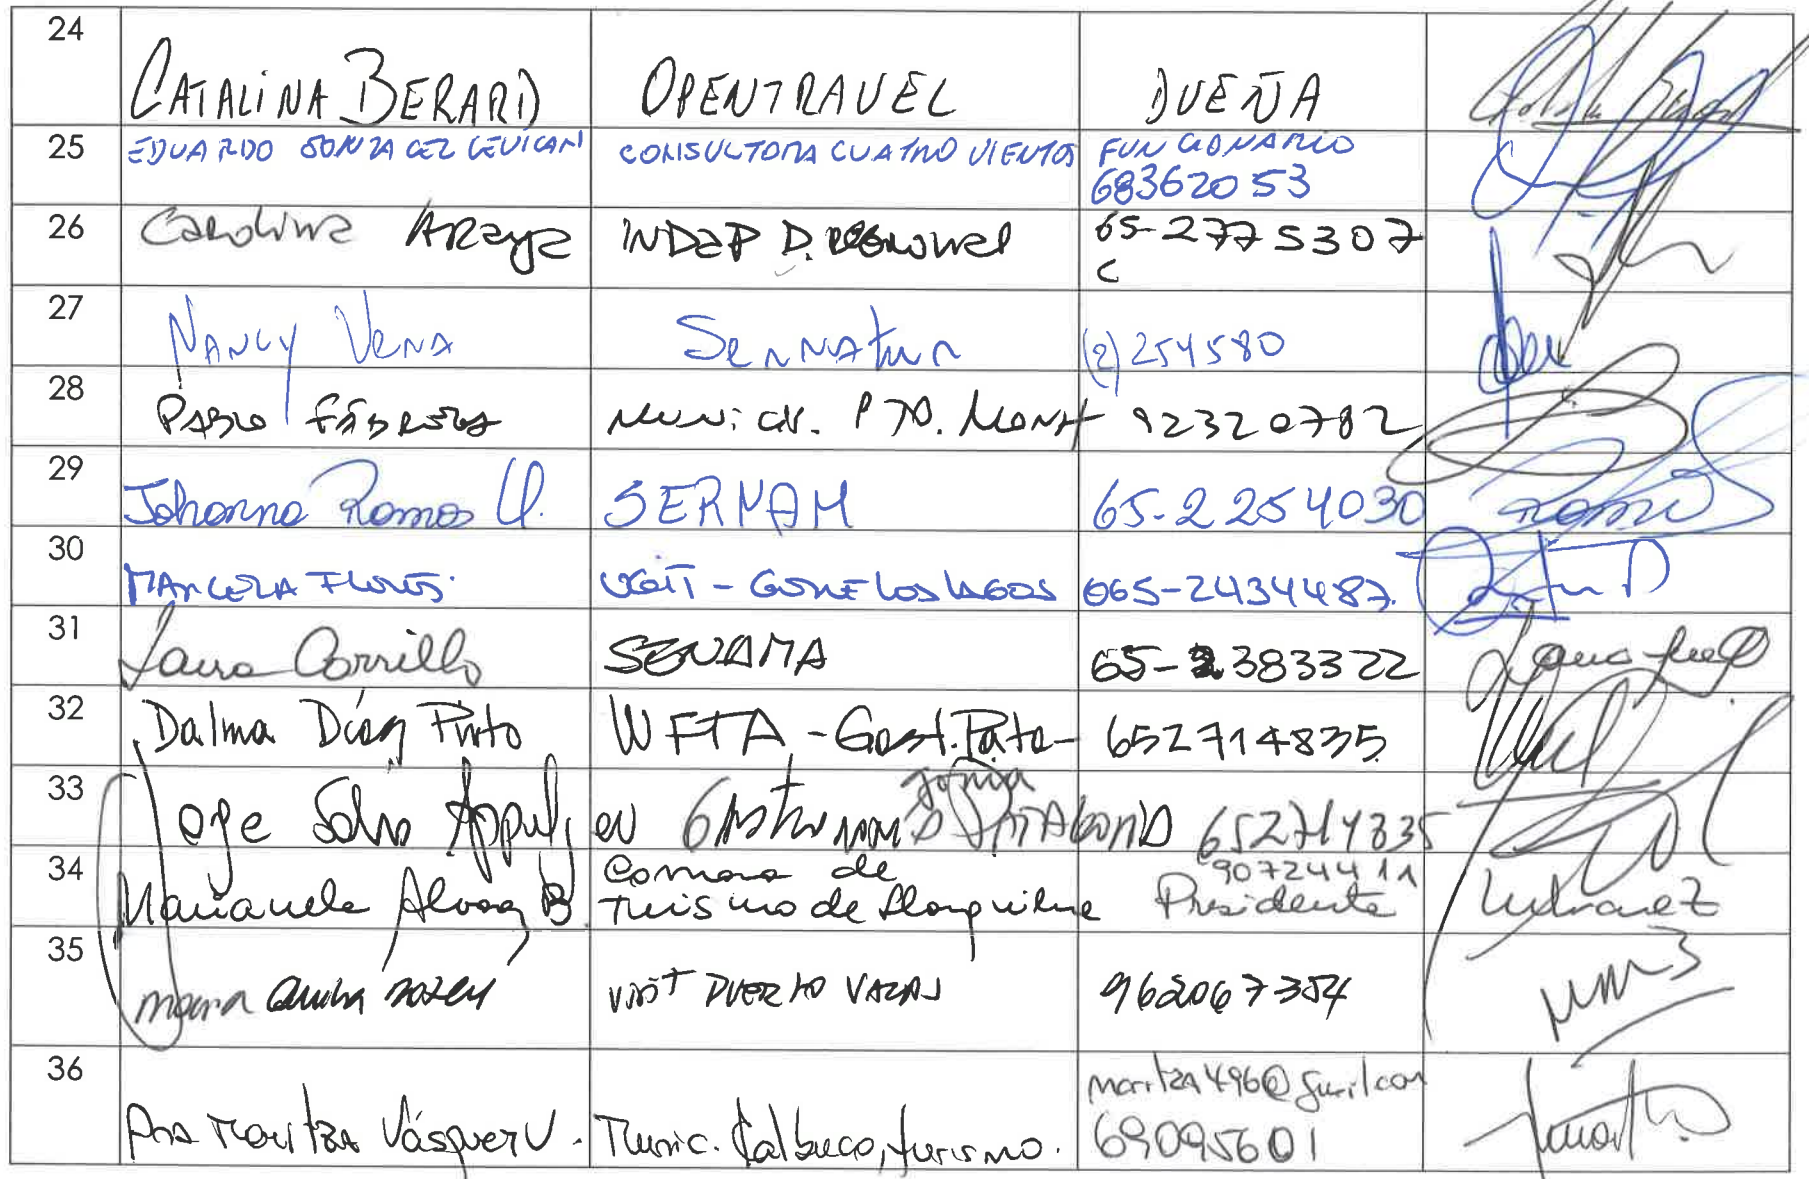 24 CATALINA BERARD OPENTRAVEL DUEÑA
25 EDUARDO GONZALEZ LEVICAN CONSULTORA CUATRO VIENTOS FUNCIONARIO
68362053
26 Carolina Araya INDAP D. REGIONAL 65-2775307
27 NANCY VERA SERNATUR (2)254580
28 PABLO FÁBREGA MUNICIP. PTO. MONTT 92320782
29 Johanna Ramos U. SERNAM 65-2254030
30 MARCELA FLORES. UGIT-GORE LOS LAGOS 065-2434487.
31 Laura Carrillo SENAMA 65-2383322
32 Dalma Díaz Pinto WFTA-Gast. Pata- 652714835
gonia
33 Jorge Salvo GASTRONOMIA PATAGONIA 652714835
34 Marianela Alvarez B. Camara de 90724411
Turismo de Llanquihue Presidenta
35 maria VISIT PUERTO VARAS 962067354
36 maritza496@gmail.com
Ana Maritza Vásquez V. Munic. Calbuco, turismo. 69095601